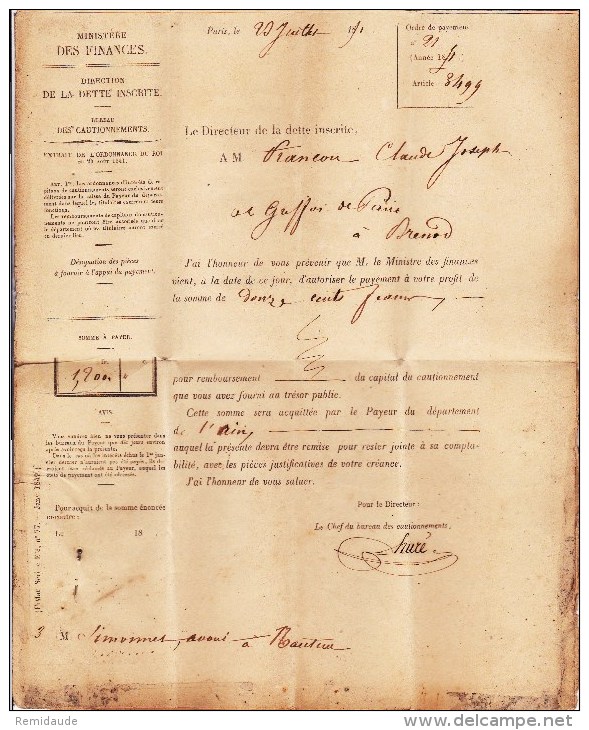 MINISTÈRE
DES FINANCES.
DIRECTION
DE LA DETTE INSCRITE.
BUREAU
DES CAUTIONNEMENTS.
EXTRAIT DE L'ORDONNANCE DU ROI
du 24 août 1841.
Désignation des pièces
à fournir à l'appui du payement.
SOMME À PAYER.
1,200
AVIS.
Vous voudrez bien ne vous présenter dans
les bureaux du Payeur que dix jours environ
après avoir reçu la présente.
Pour acquit de la somme énoncée
ci-contre :
La 18
Paris, le 23 Juillet 1851
Ordre de payement
n° 21
(Année 1851)
Article 8499
Le Directeur de la dette inscrite,
A M Francon Claude Joseph
de
à Brenod
J'ai l'honneur de vous prévenir que M. le Ministre des finances
vient, à la date de ce jour, d'autoriser le payement à votre profit de
la somme de douze cents francs
pour remboursement du capital du cautionnement
que vous avez fourni au trésor public.
Cette somme sera acquittée par le Payeur du département
de l'ain
auquel la présente devra être remise pour rester jointe à sa compta-
bilité, avec les pièces justificatives de votre créance.
J'ai l'honneur de vous saluer.
Pour le Directeur :
Le Chef du bureau des cautionnements,
huré
3 M Simonnet, avoué à Nantua
Remidaude
delcampe.net